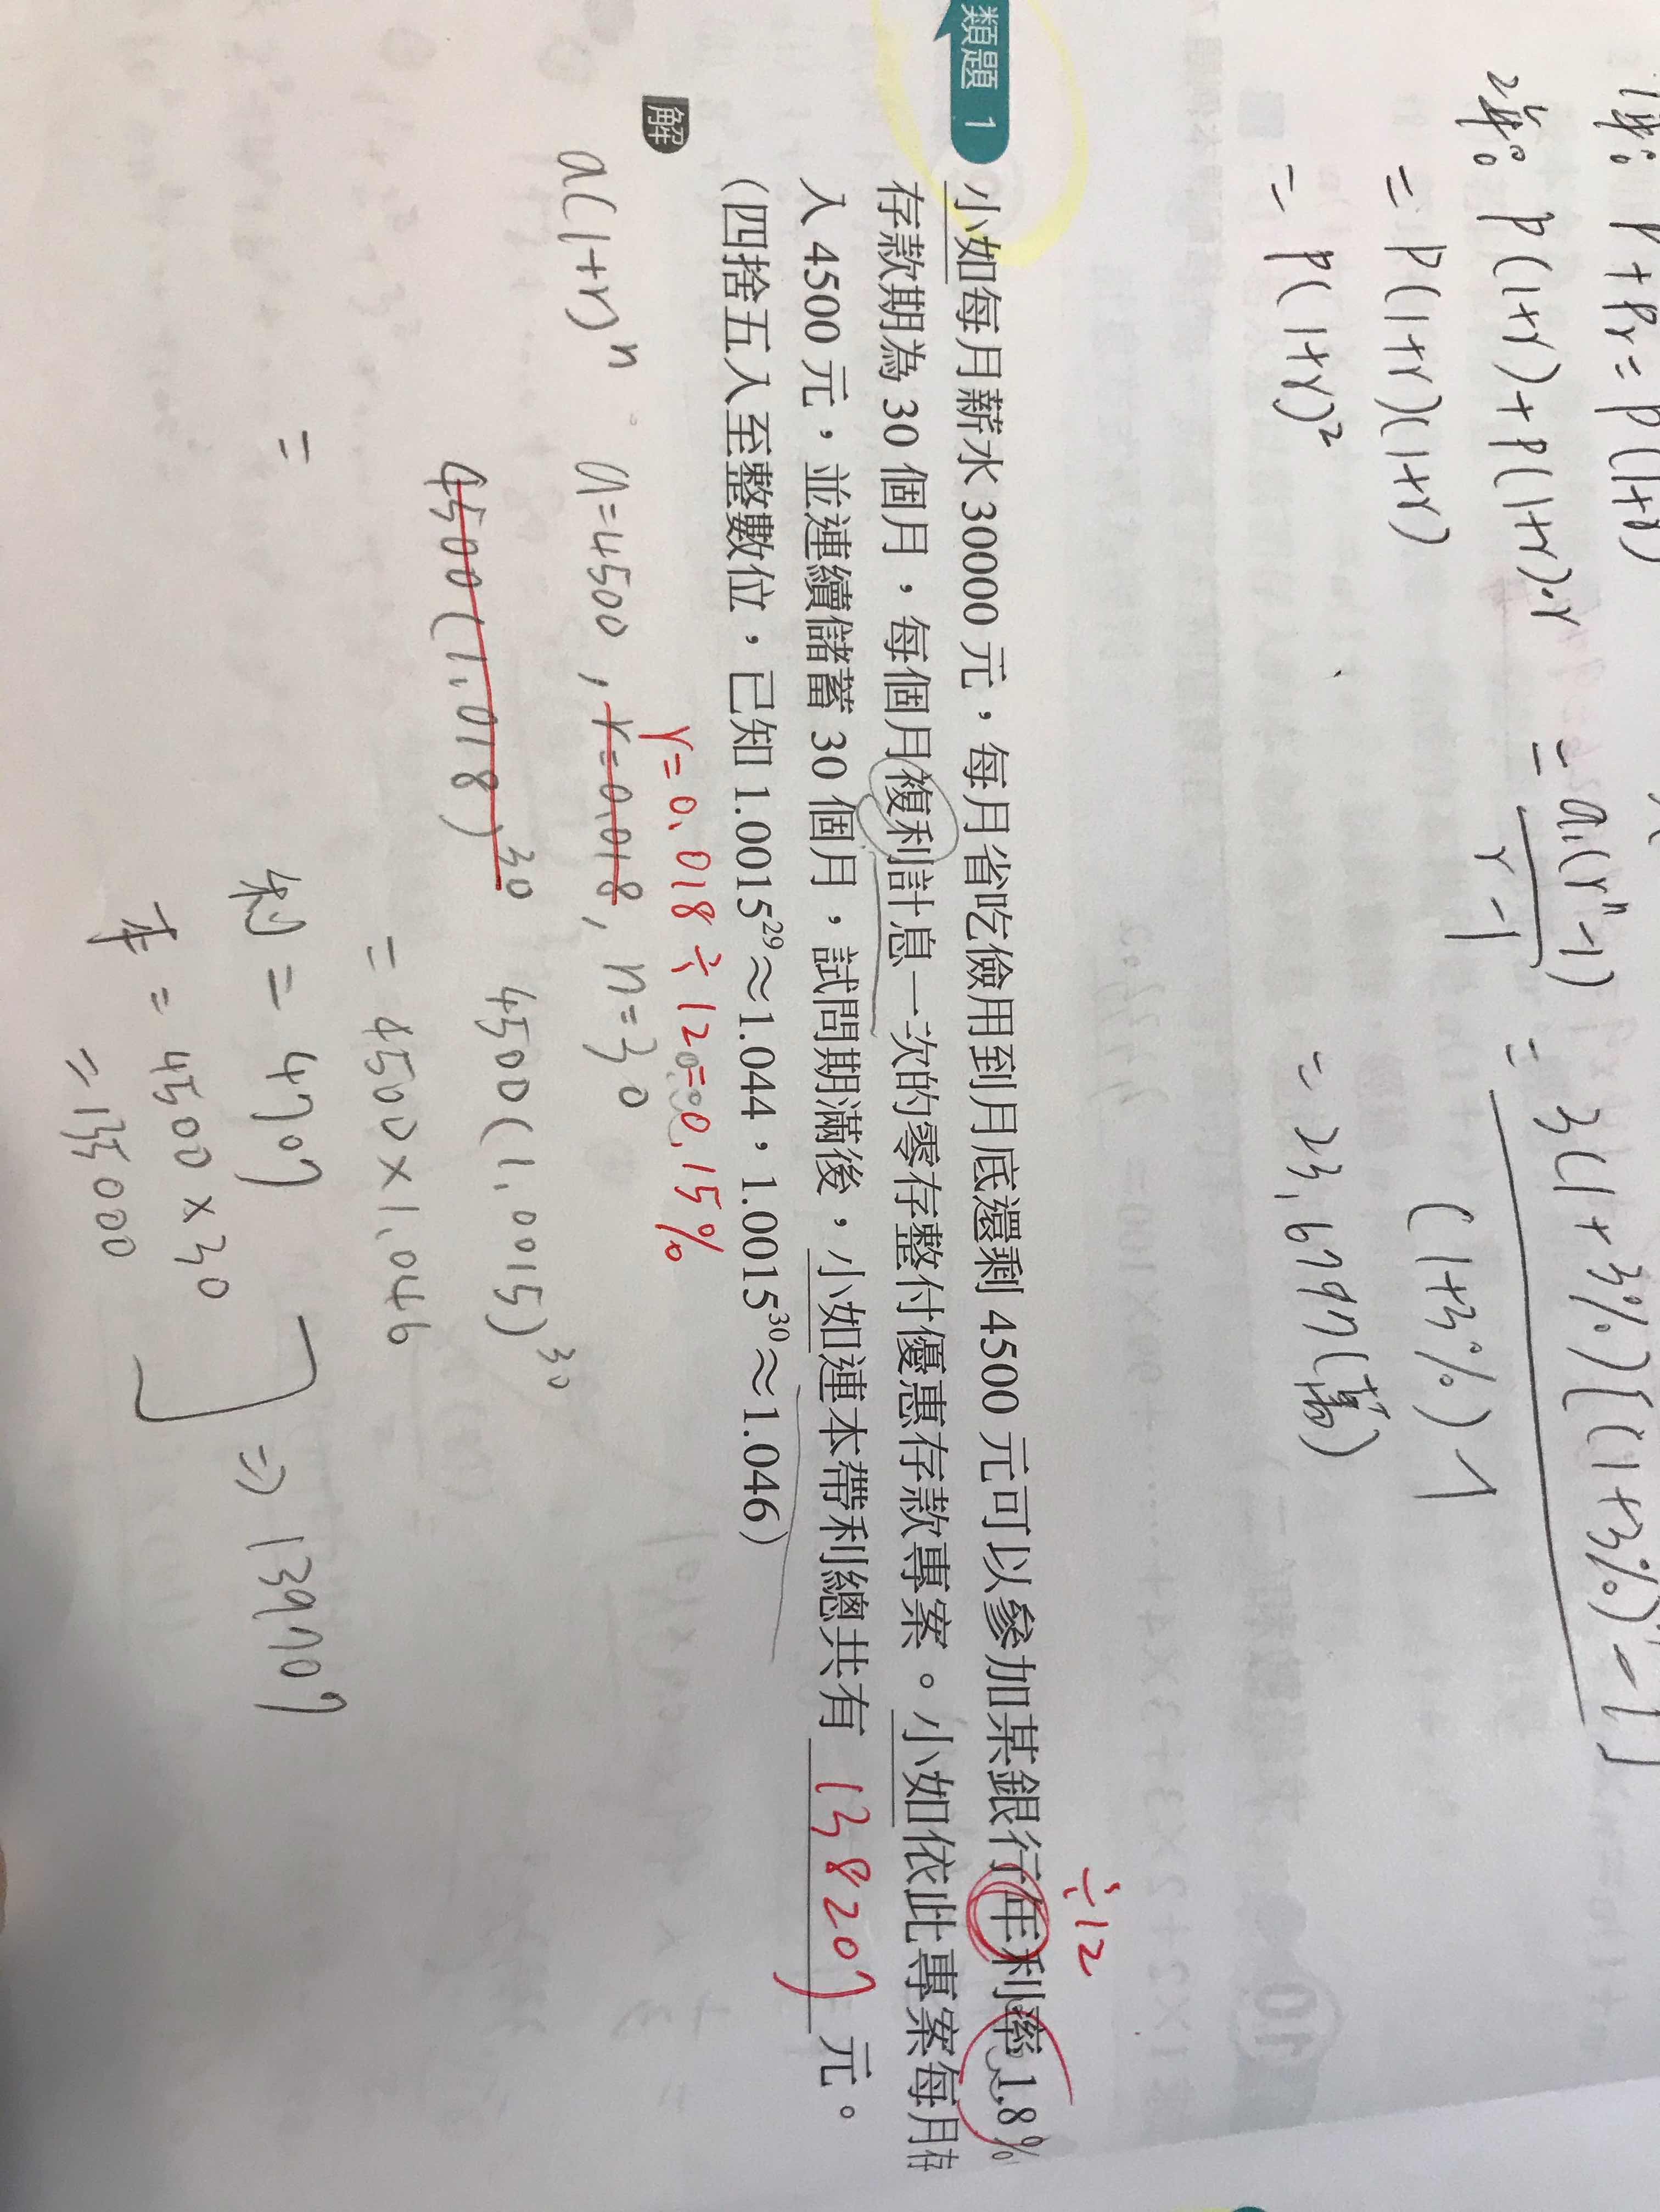 1年：P+Pr=P(1+r)
2年：P(1+r)+P(1+r)·r
=P(1+r)(1+r)
=P(1+r)²
=a₁(rⁿ-1)
r-1
=3(1+3%)[(1+3%)
-1]
(1+3%)-1
=23.6797(萬)
÷12
類題 1
小如每月薪水 30000 元，每月省吃儉用到月底還剩 4500 元可以參加某銀行年利率 1.8%
存款期為 30 個月，每個月複利計息一次的零存整付優惠存款專案。小如依此專案每月存
入 4500 元，並連續儲蓄 30 個月，試問期滿後，小如連本帶利總共有 138207 元。
（四捨五入至整數位，已知 1.0015²⁹≈1.044，1.0015³⁰≈1.046）
解
r=0.018÷12=0.15%
a(1+r)ⁿ a=4500, r=0.018, n=30
4500(1.018)³⁰ 4500(1.0015)³⁰
=4500×1.046
=
利=4707
本=4500×30
=135000
⇒139707